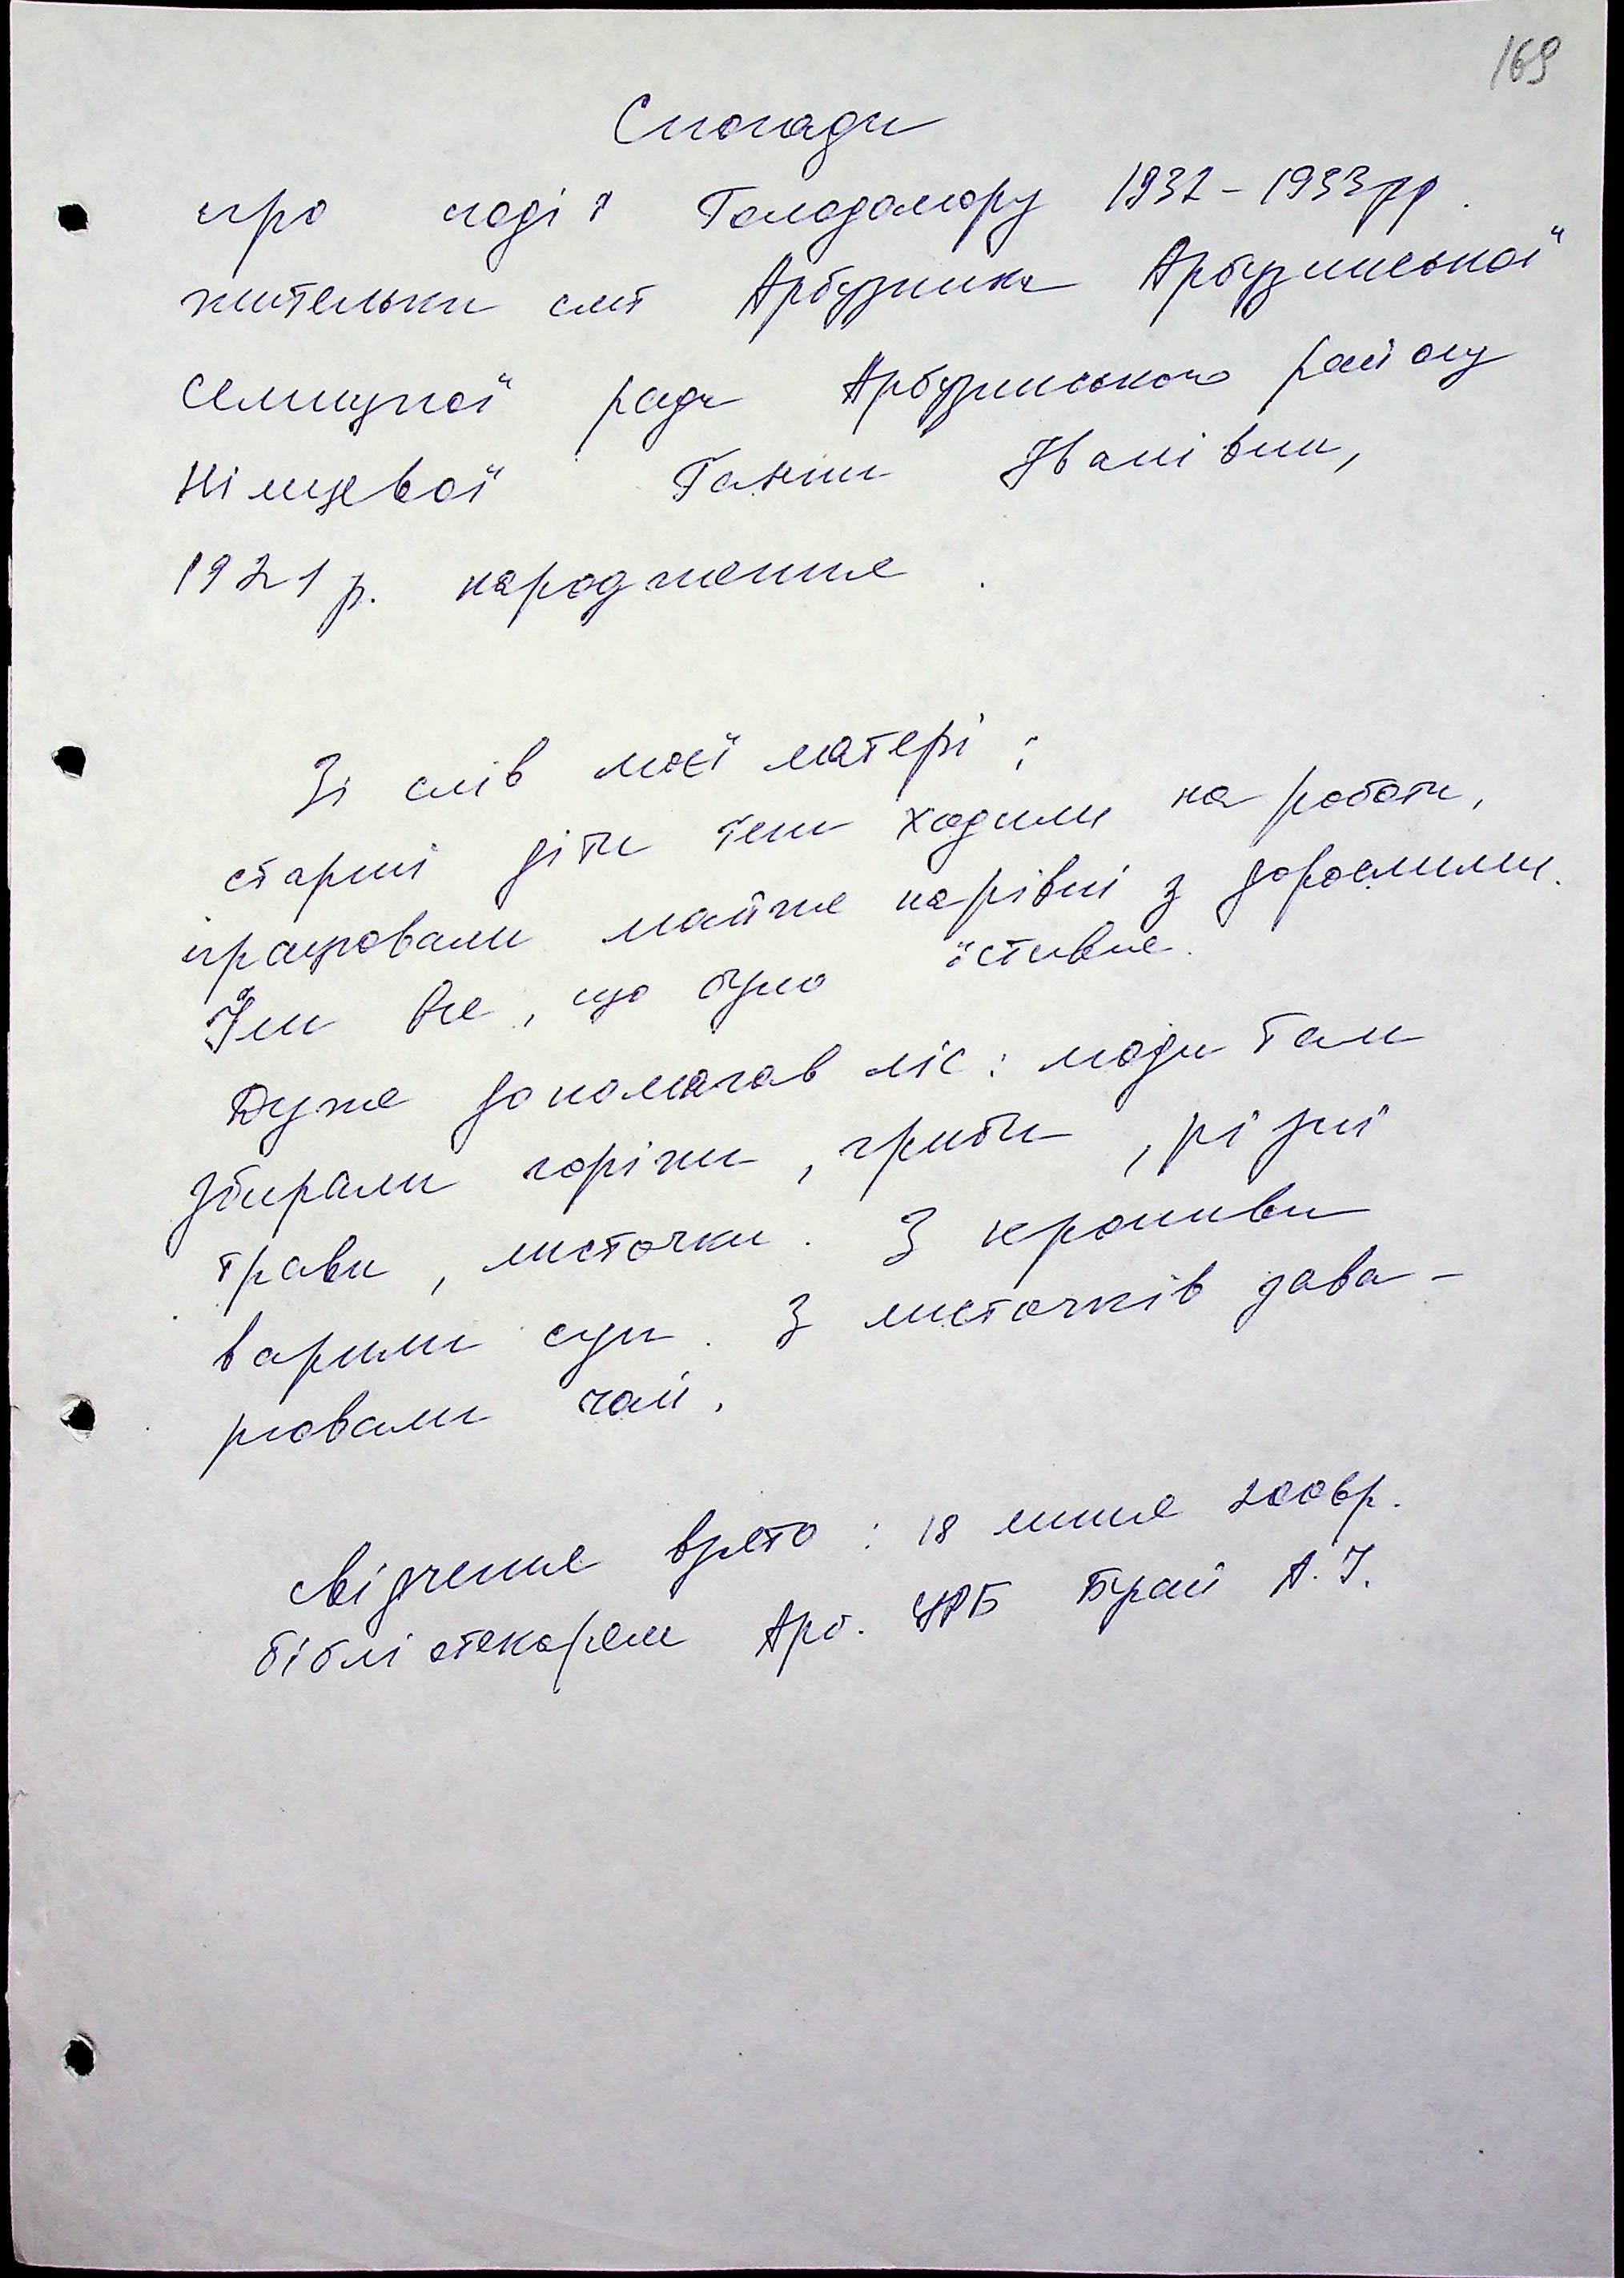 169
Спогади
про події Голодомору 1932-1933рр.
жительки смт Арбузинка Арбузинської
селищної ради Арбузинського району
Німцевої Ганни Іванівни,
1921 р. народження.
Зі слів моєї матері:
старші діти теж ходили на роботи,
працювали майже нарівні з дорослими.
Їли все, що було їстивне.
Дуже допомагав ліс: люди там
збирали горіхи, гриби, різні
трави, листочки. З кропиви
варили суп. З листочків зава-
рювали чай.
Свідчення взято: 18 липня 2008р.
бібліотекарем Арб. ЦРБ А.І.